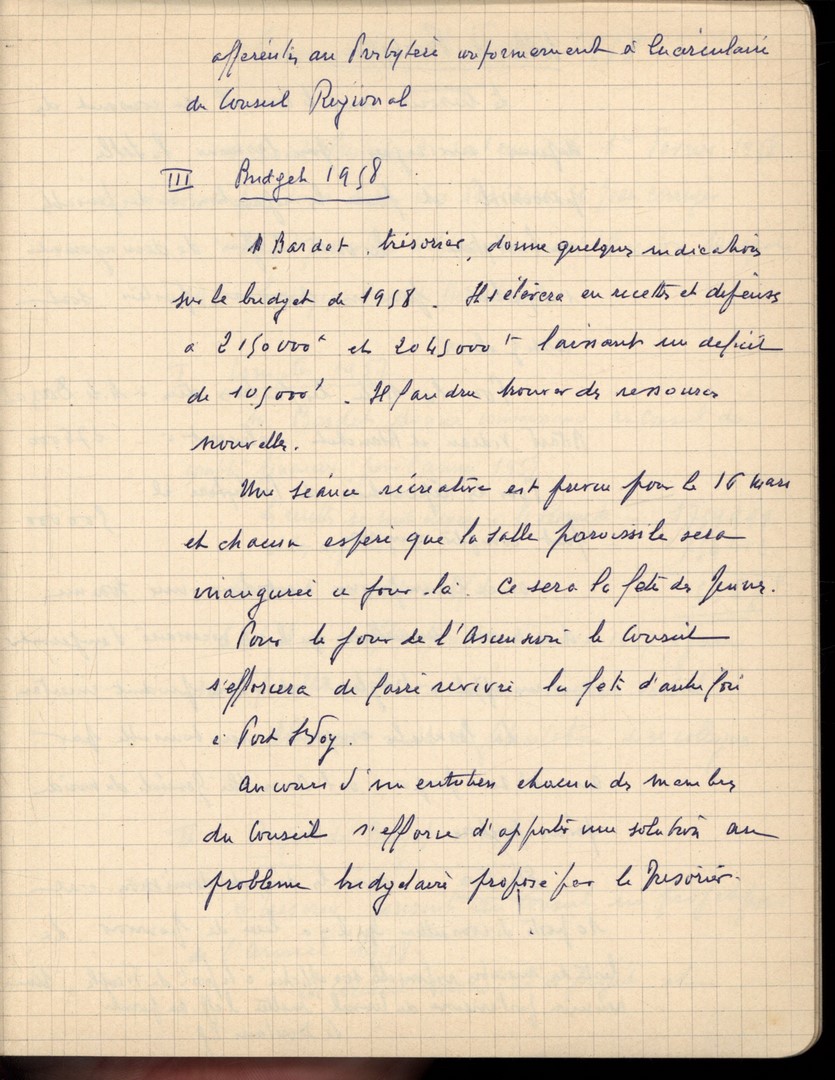 afférentes au Presbytère conformément à la circulaire
du Conseil Régional
III Budget 1958
M Bardet, trésorier, donne quelques indications
sur le budget de 1958. Il s'élèvera en recettes et dépenses
a 2150000 et 2045000 laissant un déficit
de 105000. Il faudra trouver des ressources
nouvelles.
Une séance récréative est prévue pour le 16 mars
et chacun espère que la salle paroissiale sera
inaugurée ce jour-là. Ce sera la fête des Jeunes.
Pour le jour de l'Ascension le Conseil
s'efforcera de faire revivre la fête d'autrefois
à Port Ste Foy.
Au cours d'un entretien chacun des membres
du Conseil s'efforce d'apporter une solution au
problème budgétaire proposé par le Trésorier.